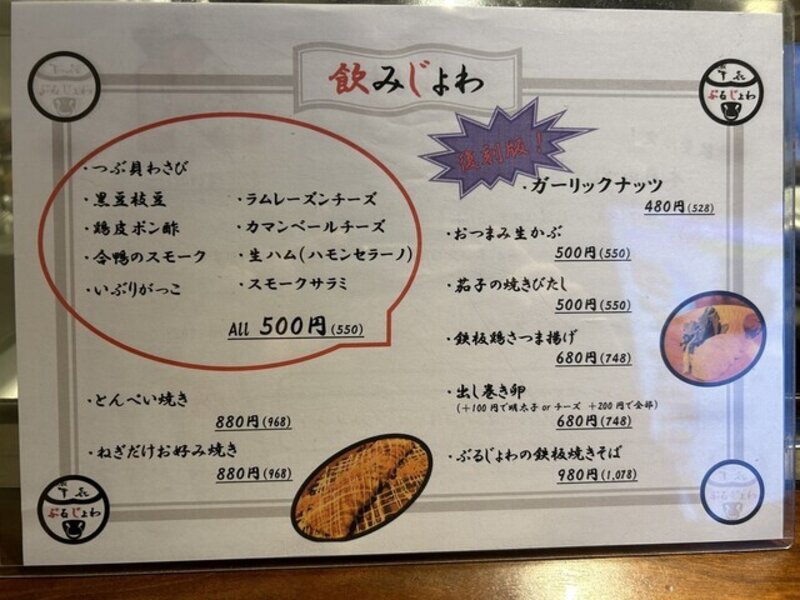 飲みじょわ
ぶるじょわ
・つぶ貝わさび
・黒豆枝豆
・鶏皮ポン酢
・合鴨のスモーク
・いぶりがっこ
・ラムレーズンチーズ
・カマンベールチーズ
・生ハム(ハモンセラーノ)
・スモークサラミ
All 500円(550)
・とんぺい焼き
880円(968)
・ねぎだけお好み焼き
880円(968)
復刻版!
・ガーリックナッツ
480円(528)
・おつまみ生かぶ
500円(550)
・茄子の焼きびたし
500円(550)
・鉄板鶏さつま揚げ
680円(748)
・出し巻き卵
(+100円で明太子orチーズ +200円で全部)
680円(748)
・ぶるじょわの鉄板焼きそば
980円(1,078)
ぶるじょわ